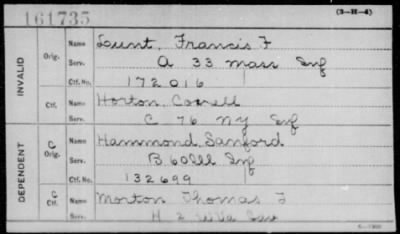 161735 (3-H-4)
INVALID Orig. Name Lunt, Francis F
Serv. A 33 Mass Inf
Ctf. No. 172016
Ctf. Name Horton, Cowell
Serv. C 76 NY Inf
DEPENDENT C Orig. Name Hammond, Sanford
Serv. B 60 Ill Inf
Ctf. No. 132699
C Ctf. Name Morton Thomas F
Serv. H 2 W Va Cav